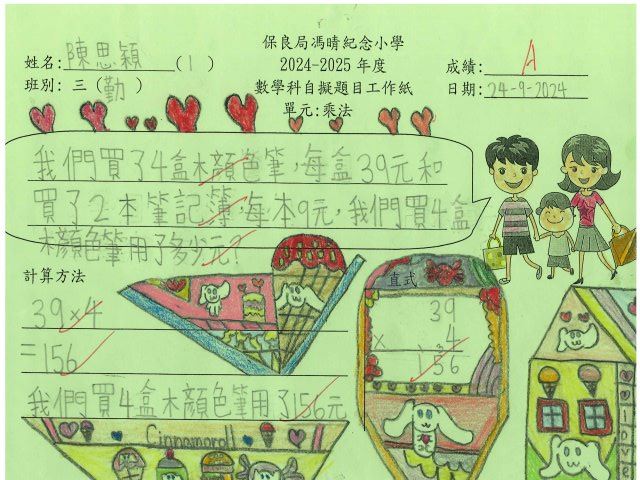 保良局馮晴紀念小學
姓名: 陳思穎 (1)
2024-2025 年度
成績: A
班別: 三 (勤)
數學科自擬題目工作紙
日期: 24-9-2024
單元:乘法
我們買了4盒木顏色筆,每盒39元和
買了2本筆記簿,每本9元,我們買4盒
木顏色筆用了多少元?
計算方法
39×4
=156
我們買4盒木顏色筆用了156元
直式
39
× 4
156
Cinnamoroll
love